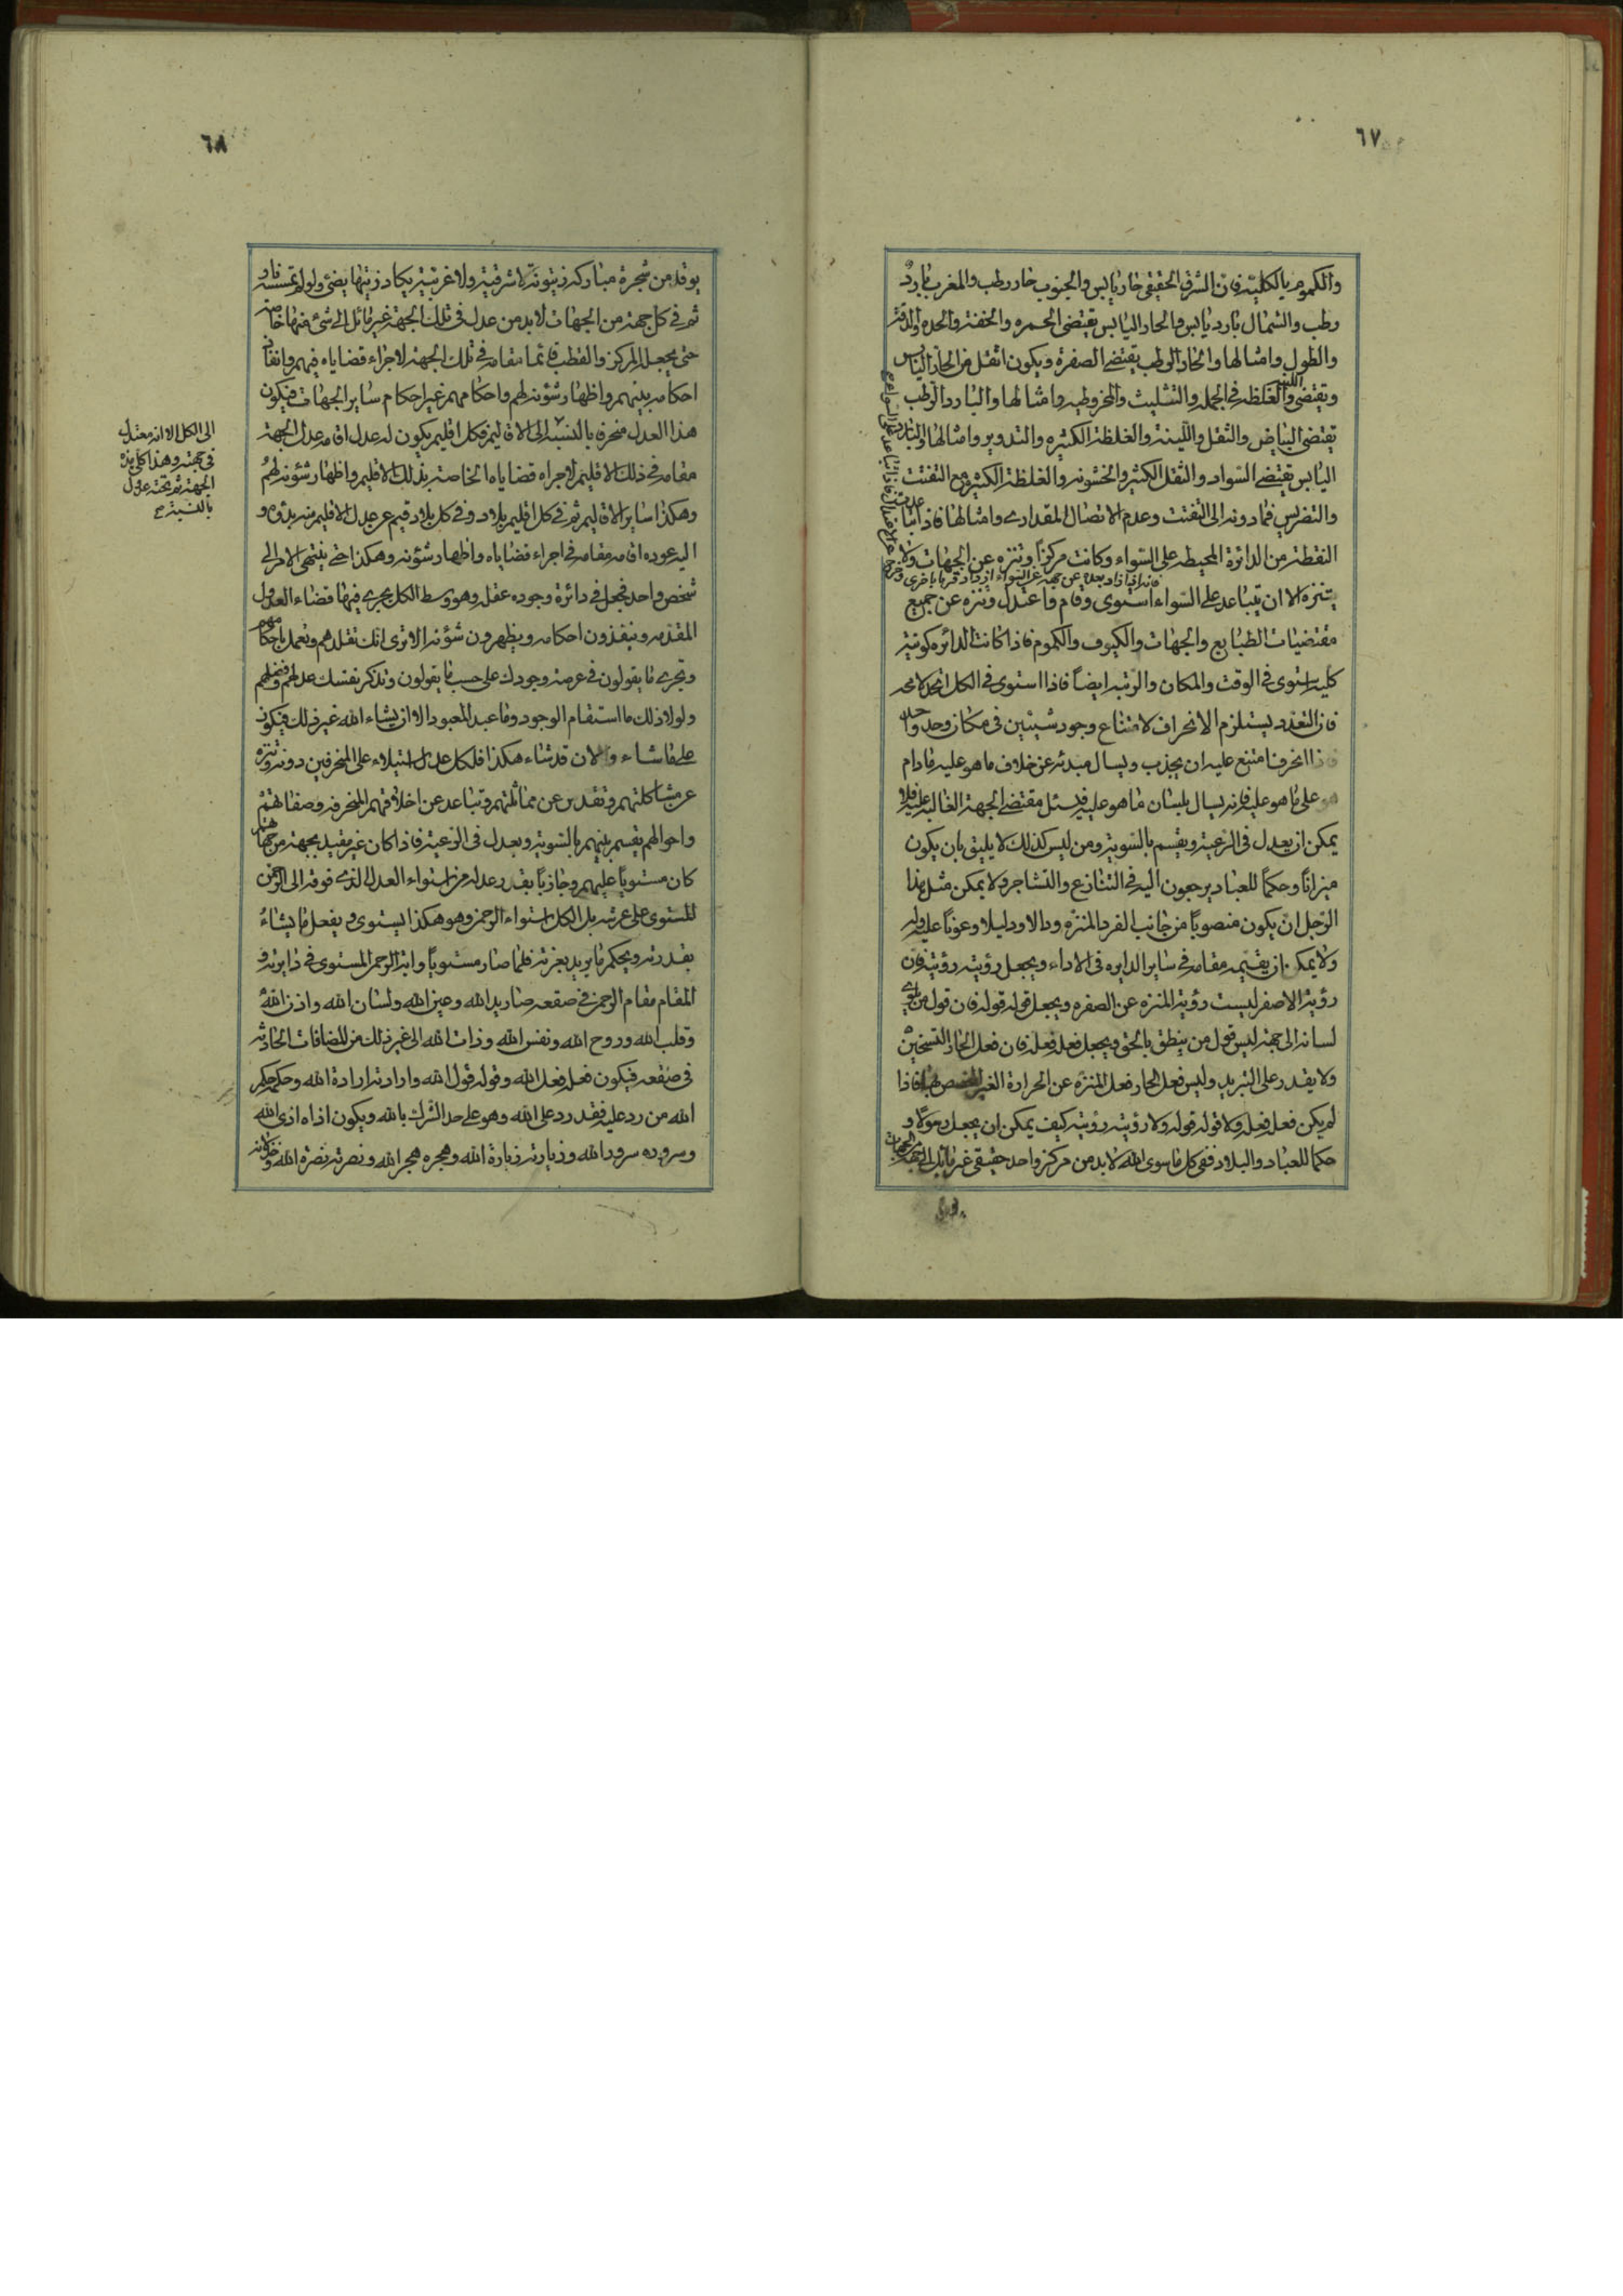 ٦٧
والكموم بالكلية فان الشرق الحقيقي حار يابس والجنوب حار رطب والمغرب بارد
رطب والشمال بارد يابس فالحار اليابس يقتضي الحمره والخفة والحده والدقة
والطول وامثالها والحار الرطب يقتضي الصفرة ويكون اثقل من الحار اليابس
ويقتضي اللين والغلظه في الجمله والتثليث والمخروطيه وامثالها والبارد الرطب
يقتضي البياض والثقل واللينة والغلظة الكثيره والتدوير وامثالها والبارد
اليابس يقتضي السواد والثقل الكثير والخشونه والغلظة الكثيره مع التفتت
والتضريس فمادونه الى التفتت وعدم الاتصال المقداري وامثالها فاذا تباعدت
النقطة من الدائرة المحيطه على السواء وكانت مركزاً وتنزه عن الجهات ولا
فانه اذا زاد بعده عن جهة عن السواء ازداد قربا باخرى
يتنزه الا ان يتباعد على السواء استوى وقام واعتدل وتنزه عن جميع
مقتضيات الطبايع والجهات والكيوف والكموم فاذا كانت الدائره كونية
كلية استوى في الوقت والمكان والرتبه ايضاً فاذا استوى في الكل اتحد لامحه
فان التعدد يستلزم الانحراف لامتناع وجود شيئين في مكان واحد واحد
فاذا انحرفا امتنع عليه ان يجذب ويسال مبدئه عن خلاف ما هو عليه مادام
هو على ما هو عليه فانه يسال بلسان ما هو عليه فيسئل مقتضي الجهة الغالبه عليه فلا
يمكن ان يعدل في الرعية ويقسم بالسوية ومن ليس كذلك لا يليق بان يكون
ميزاناً وحكماً للعباد يرجعون اليه في التنازع والتشاجر ولا يمكن مثل هذا
الرجل ان يكون منصوباً من جانب الفرد المنزه ودالا ودليلا وعوناً عليه وله
ولا يمكن ان يقيمه مقامه في ساير الدايره في الاداء ويجعل رؤيته رؤيته فان
رؤية الاصفر ليست رؤية المنزه عن الصفره ويجعل قوله قوله فان قول من يلوي
لسانه الى جهة ليس قول من ينطق بالحق ويجعل فعله فعله فان فعل الحار التسخين
ولا يقدر على التبريد وليس فعل الحار فعل المنزه عن الحرارة الغير المختص بها فاذا
لم يكن فعله فعله ولا قوله قوله ولا رؤيته رؤيته كيف يمكن ان يجعله مولا و
حكما للعباد والبلاد ففي كل ماسوى الله لابد من مركز واحد حقيقي غير مائل الى جهة من الجهات
٦٨
يوقد من شجرة مباركه زيتونة لا شرقية ولا غربية يكاد زيتها يضئ ولو لم تمسسه نار و
ثم في كل جهة من الجهات لابد من عدل في تلك الجهة غير مائل الى شئ منها خاصة
حتى يجعل المركز والقطب قائما مقامه في تلك الجهة لاجراء قضاياه فيهم وانفاذ
احكامه بينهم واظهار شؤنه لهم واحكامهم غير احكام ساير الجهات فيكون
هذا العدل منحرفا بالنسبة الى الاقاليم فكل اقليم يكون له عدل اقامه عدل الجهة
مقامه في ذلك الاقليم لاجراء قضاياه الخاصة بذلك الاقليم واظهار شؤنه لهم
وهكذا ساير الاقاليم ثم في كل اقليم بلاد وفي كل بلاد قيم عن عدل الاقليم منه بدؤه و
اليه عوده اقامه مقامه في اجراء قضاياه واظهار شؤنه وهكذا حتى ينتهي الامر الى
شخص واحد فجعل في دائرة وجوده عقله وهو وسط الكل يجري فيها قضاء العدول
المقدمه وينفذون احكامه ويظهرون شؤنه الاترى انك تقلدهم وتعمل باحكامهم
وتجري ما يقولون في عرصة وجودك على حسب ما يقولون وتذكر نفسك عدلهم وفضلهم
ولولا ذلك ما استقام الوجود وما عبد المعبود الا ان يشاء الله غير ذلك فيكون
على ما شاء والان قد شاء هكذا فلكل عدل استيلاء على المنحرفين دونه وتنزه
عن مشاكلتهم وتقدس عن مماثلتهم وتباعد عن اخلاقهم المنحرفه وصفاتهم
واحوالهم يقسم بينهم بالسوية ويعدل في الرعية فاذا كان غير مقيد بجهة من جهاتهم
كان مستوياً عليهم وحاذياً بقدر عدله من استواء العدل الذي فوقه الى الرحمن
المستوى على عرشه بل الكل استواء الرحمن وهو هكذا يستوي ويفعل ما يشاء
بقدرته ويحكم ما يريد بعزته فلما صار مستوياً واية الرحمن المستوى في دايرته و
المقام مقام الرحمن في صقعه صار يد الله وعين الله ولسان الله واذن الله
وقلب الله وروح الله ونفس الله وذات الله الى غير ذلك من المضافات الحادثه
في صقعه فيكون فعله فعل الله وقوله قول الله وارادته ارادة الله وحكمه حكم
الله من رد عليه فقد رد على الله وهو على حد الشرك بالله ويكون اذاه اذى الله
وسروره سرور الله وزيارته زيارة الله وهجره هجر الله ونصرته نصرة الله وخذلانه
الى الكل الا انه معتدل
في جهة وهذا كلي هذه
الجهة ثم تحته عدول
بالنسبة صح